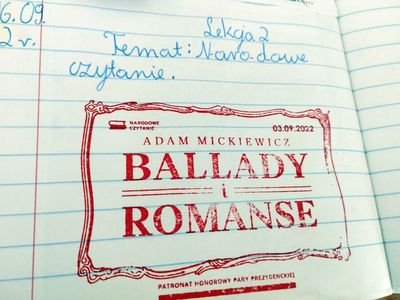 6.09.
2 r.
Lekcja 2
Temat: Narodowe
czytanie.
NARODOWE
CZYTANIE
03.09.2022
ADAM MICKIEWICZ
BALLADY
i
ROMANSE
PATRONAT HONOROWY PARY PREZYDENCKIEJ